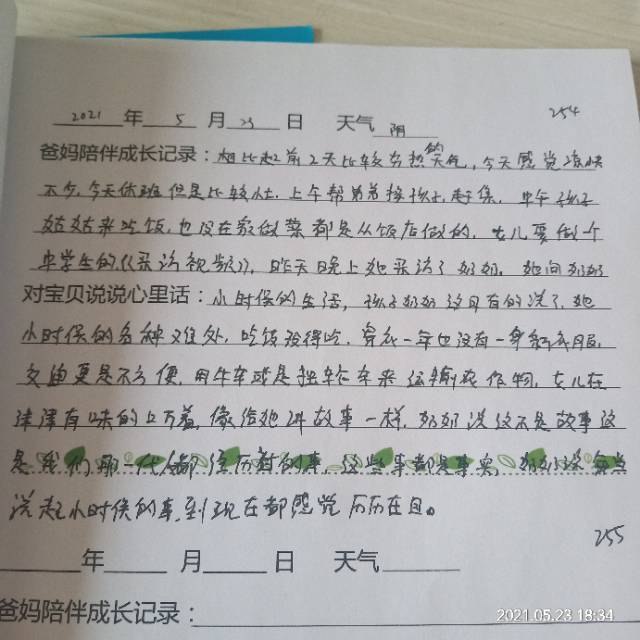 254
2021年5月23日 天气 阴
爸妈陪伴成长记录：相比起前2天比较炎热的天气，今天感觉凉快
不少，今天休班但是比较忙，上午帮弟弟接孩子，赶集，中午孩子
姑姑来吃饭，也没在家做菜都是从饭店做的，女儿要做一个
中学生的《采访视频》，昨天晚上她采访了奶奶，她问奶奶
对宝贝说说心里话：小时候的生活，孩子奶奶这真有的说了，她
小时候的各种难处，吃饭没得吃，穿衣一年也没有一身新衣服，
交通更是不方便，用牛车或是独轮车来运输农作物，女儿在
津津有味的上万着，像给她讲故事一样，奶奶说这不是故事这
是我们那一代人都经历过的事，这些事都是事实，奶奶说每当
说起小时候的事，到现在都感觉历历在目。
255
年 月 日 天气
爸妈陪伴成长记录：
2021.05.23 18:34